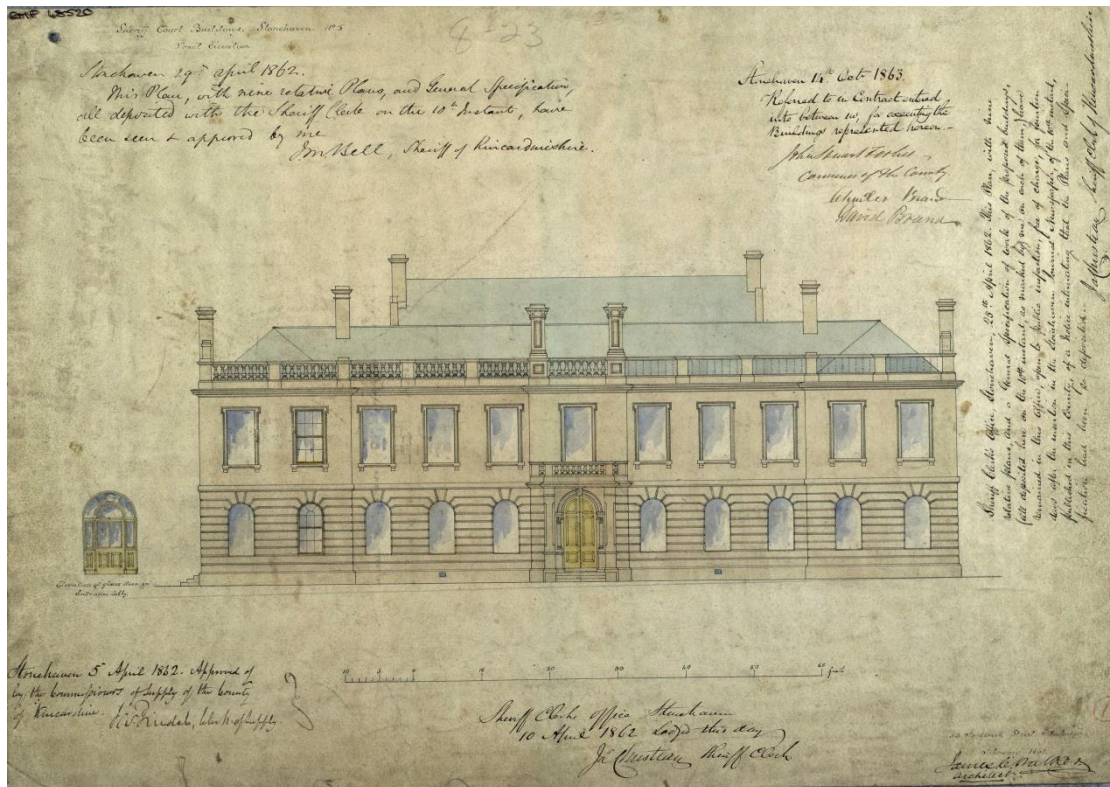 68520
8 23
Sheriff Court Buildings. Stonehaven No 5
Front Elevation
Stonehaven 29th April 1862.
This Plan, with nine relative Plans, and General Specification,
all deposited with the Sheriff Clerk on the 10th Instant, have
been seen & approved by me
Bell, Sheriff of Kincardineshire.
Stonehaven 14th Oct 1863.
Referred to in Contract entered
into between us, for executing the
Buildings represented hereon.
John Stuart Forbes
Convener of the County
David Brand
Sheriff Clerk's Office Stonehaven, 25th April 1862. This Plan, with nine
relative plans, and a General Specification of work of the proposed buildings,
(all deposited here on the 10th instant, as marked by me on each of them) have
remained in this Office, open to public inspection, free of charge, for fourteen
days after the insertion in the Stonehaven Journal Newspaper of the 10th instant,
published in this County, of a Notice intimating that the Plans and Speci-
fication had been so deposited.
Sheriff Clerk of Kincardineshire
Elevation of glass design
Entrance Lobby
10 5 0 10 20 30 40 50 60 feet
Stonehaven 5 April 1862. Approved of
by the Commissioners of Supply of the County
of Kincardine. Clerk of Supply
Sheriff Clerk's Office Stonehaven
10 April 1862 Lodged this day
Sheriff Clerk
1862
James C. Walker
Architect.